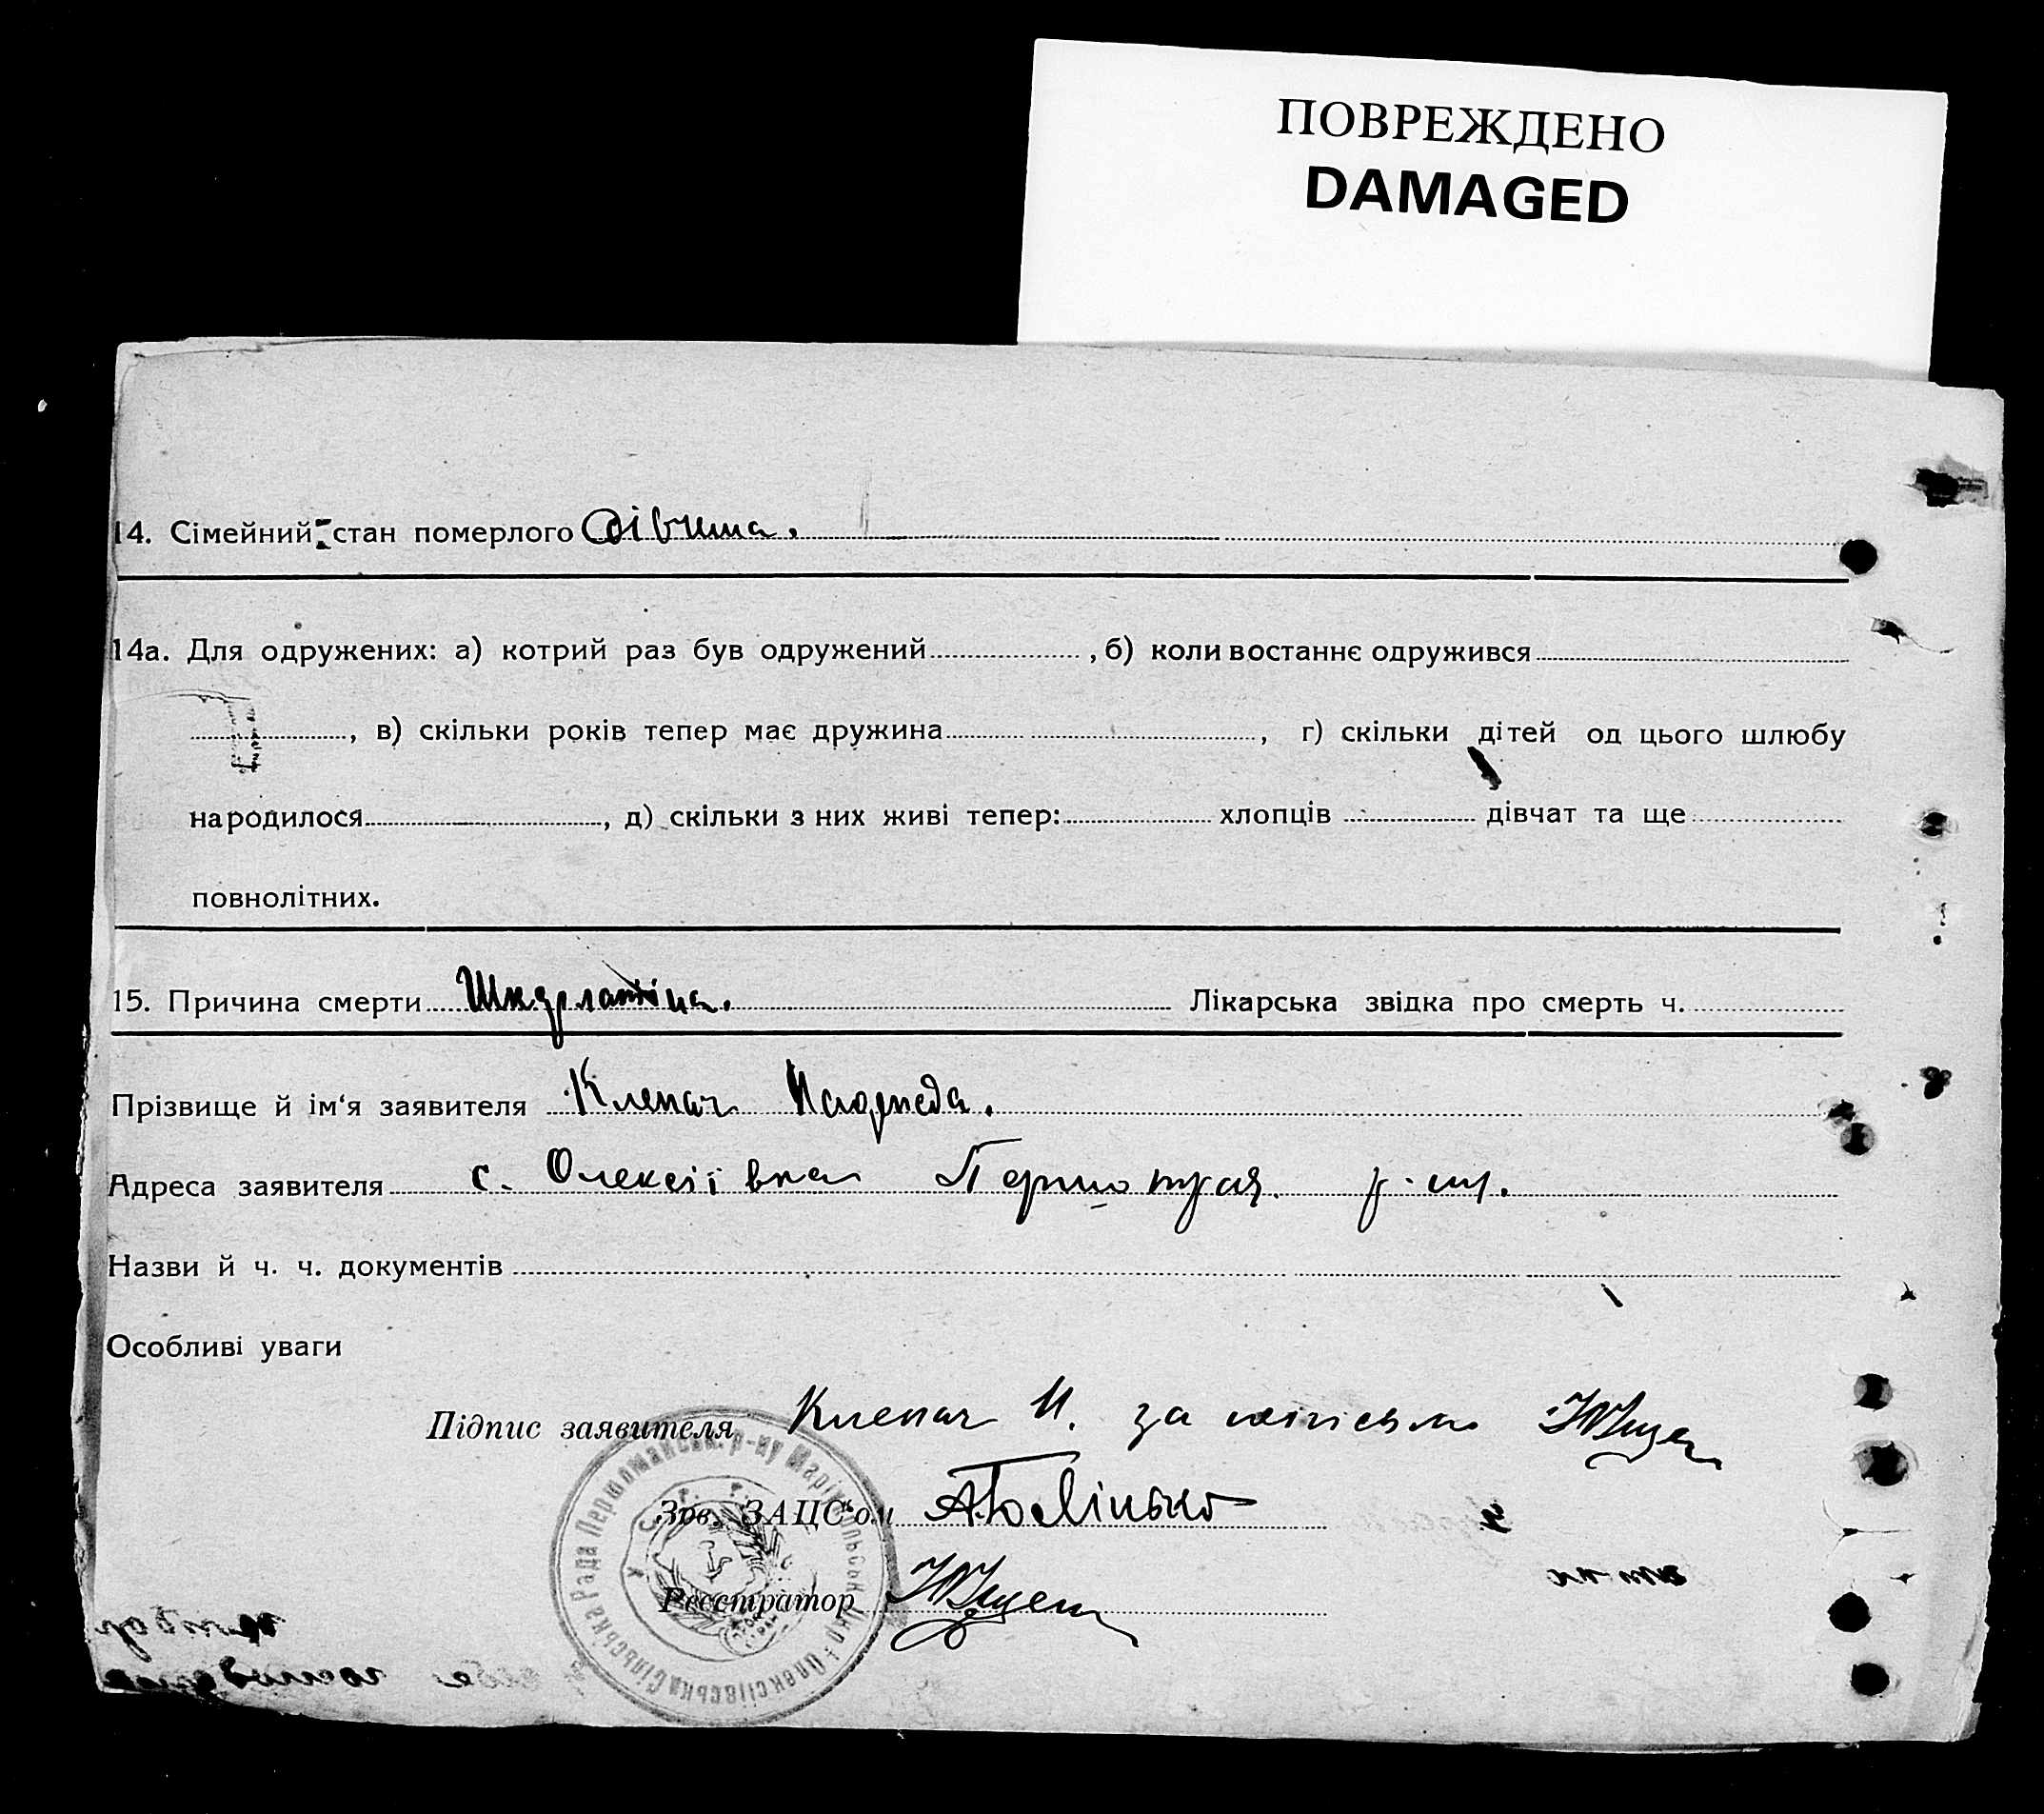 ПОВРЕЖДЕНО
DAMAGED
14. Сімейний стан померлого Дівчина.
14а. Для одружених: а) котрий раз був одружений , б) коли востаннє одружився
, в) скільки років тепер має дружина , г) скільки дітей од цього шлюбу
народилося , д) скільки з них живі тепер: хлопців дівчат та ще
повнолітних.
15. Причина смерти Шкарлатіна. Лікарська звідка про смерть ч.
Прізвище й ім'я заявителя Клепач
Адреса заявителя с. Олексіївка р.
Назви й ч. ч. документів
Особливі уваги
Підпис заявителя Клепач за
Зав. ЗАЦС'ом
Реєстратор
Олексіївська Сільська Рада Першомайськ. р-ну Маріюпольськ.